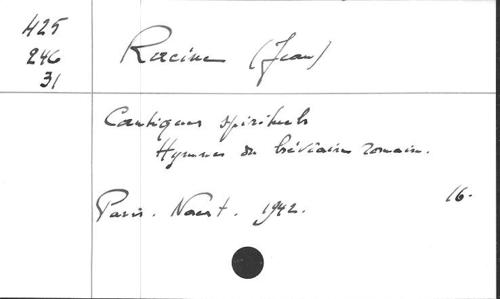 425
246
31
Racine (Jean)
Cantiques spirituels
Hymnes du bréviaire romain.
Paris. Naert. 1942.
16.